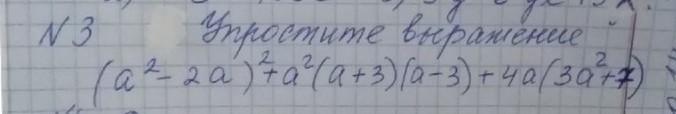 N3 Упростите выражение
(a² - 2a)² + a²(a+3)(a-3) + 4a(3a²+7)